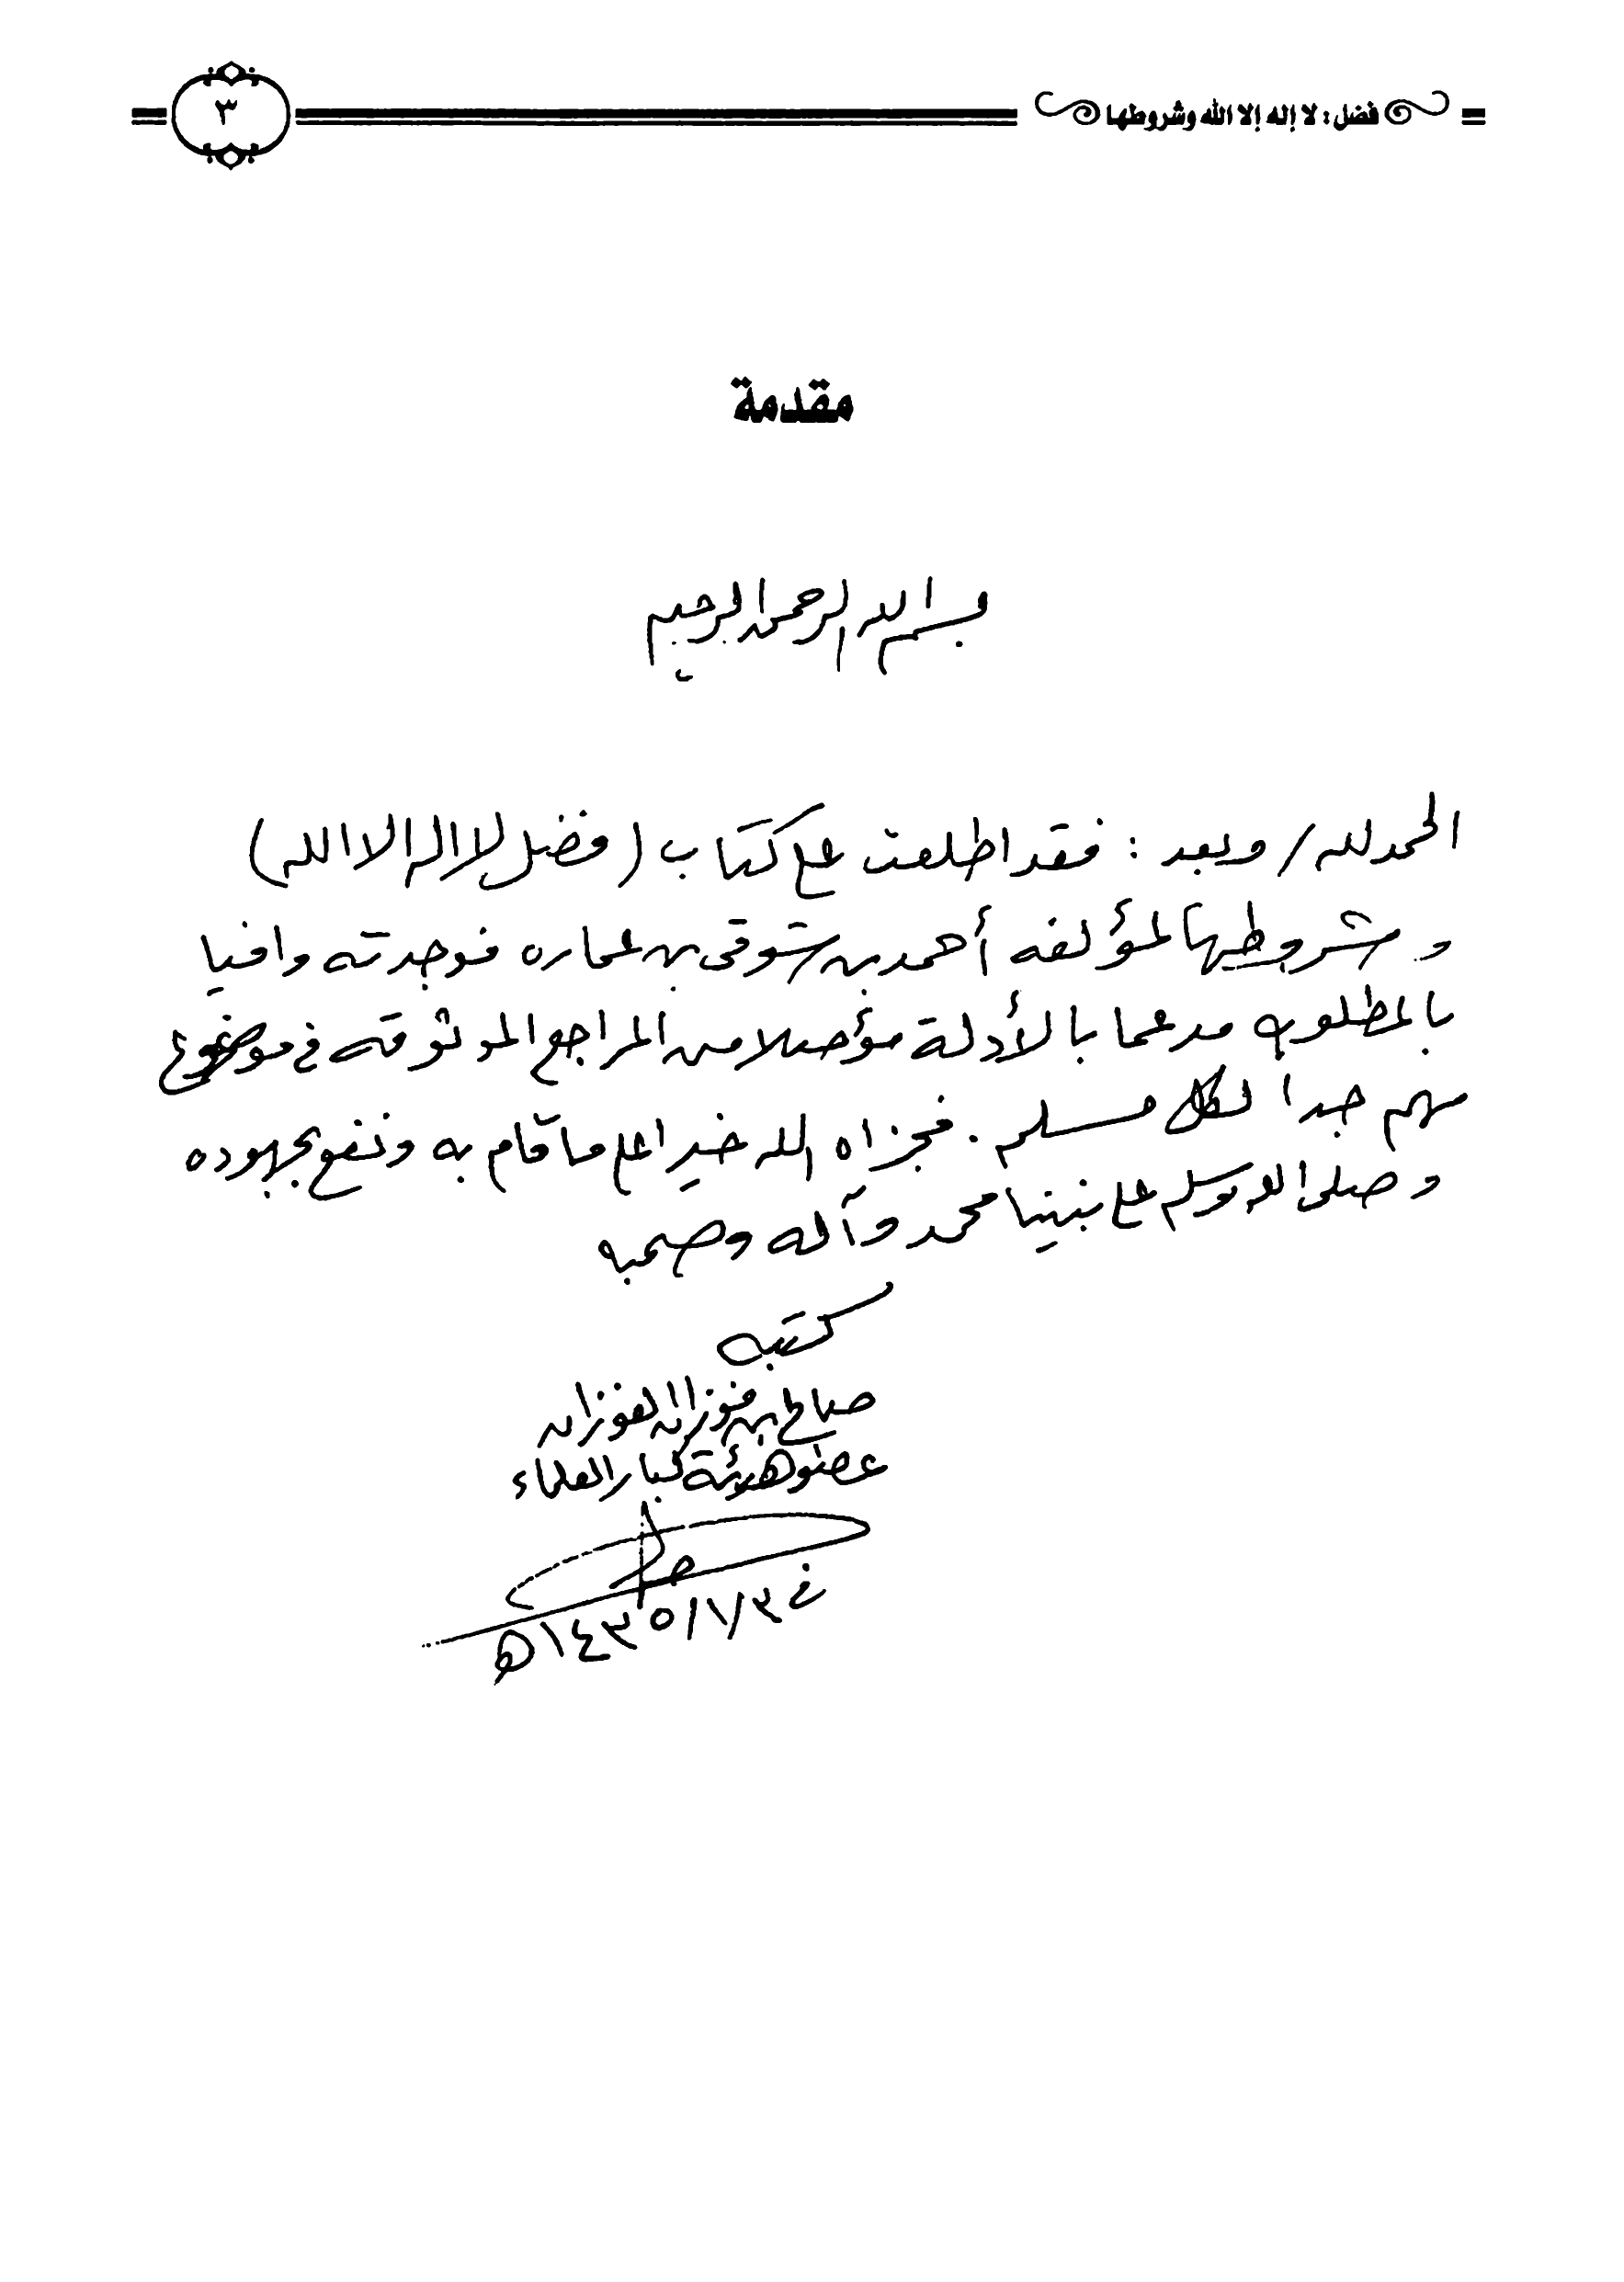 فضل: لا إله إلا الله وشروطها
٣
مقدمة
بسم الله الرحمن الرحيم
الحمد لله / وبعد : فقد اطلعت على كتاب (فضل لا اله الا الله)
وشروطها لمؤلفه أحمد بن شوقى بن عماره فوجدته وافيا
بالمطلوب مدعما بالأدلة مؤصلا من المراجع الموثوقه في موضوع
مهم جدا لكل مسلم . فجزاه الله خيرا على ما قام به ونفع بجهوده
وصلى الله وسلم على نبينا محمد وآله وصحبه
كتبه
صالح بن فوزان الفوزان
عضو هيئة كبار العلماء
في
١٤٣٥هـ